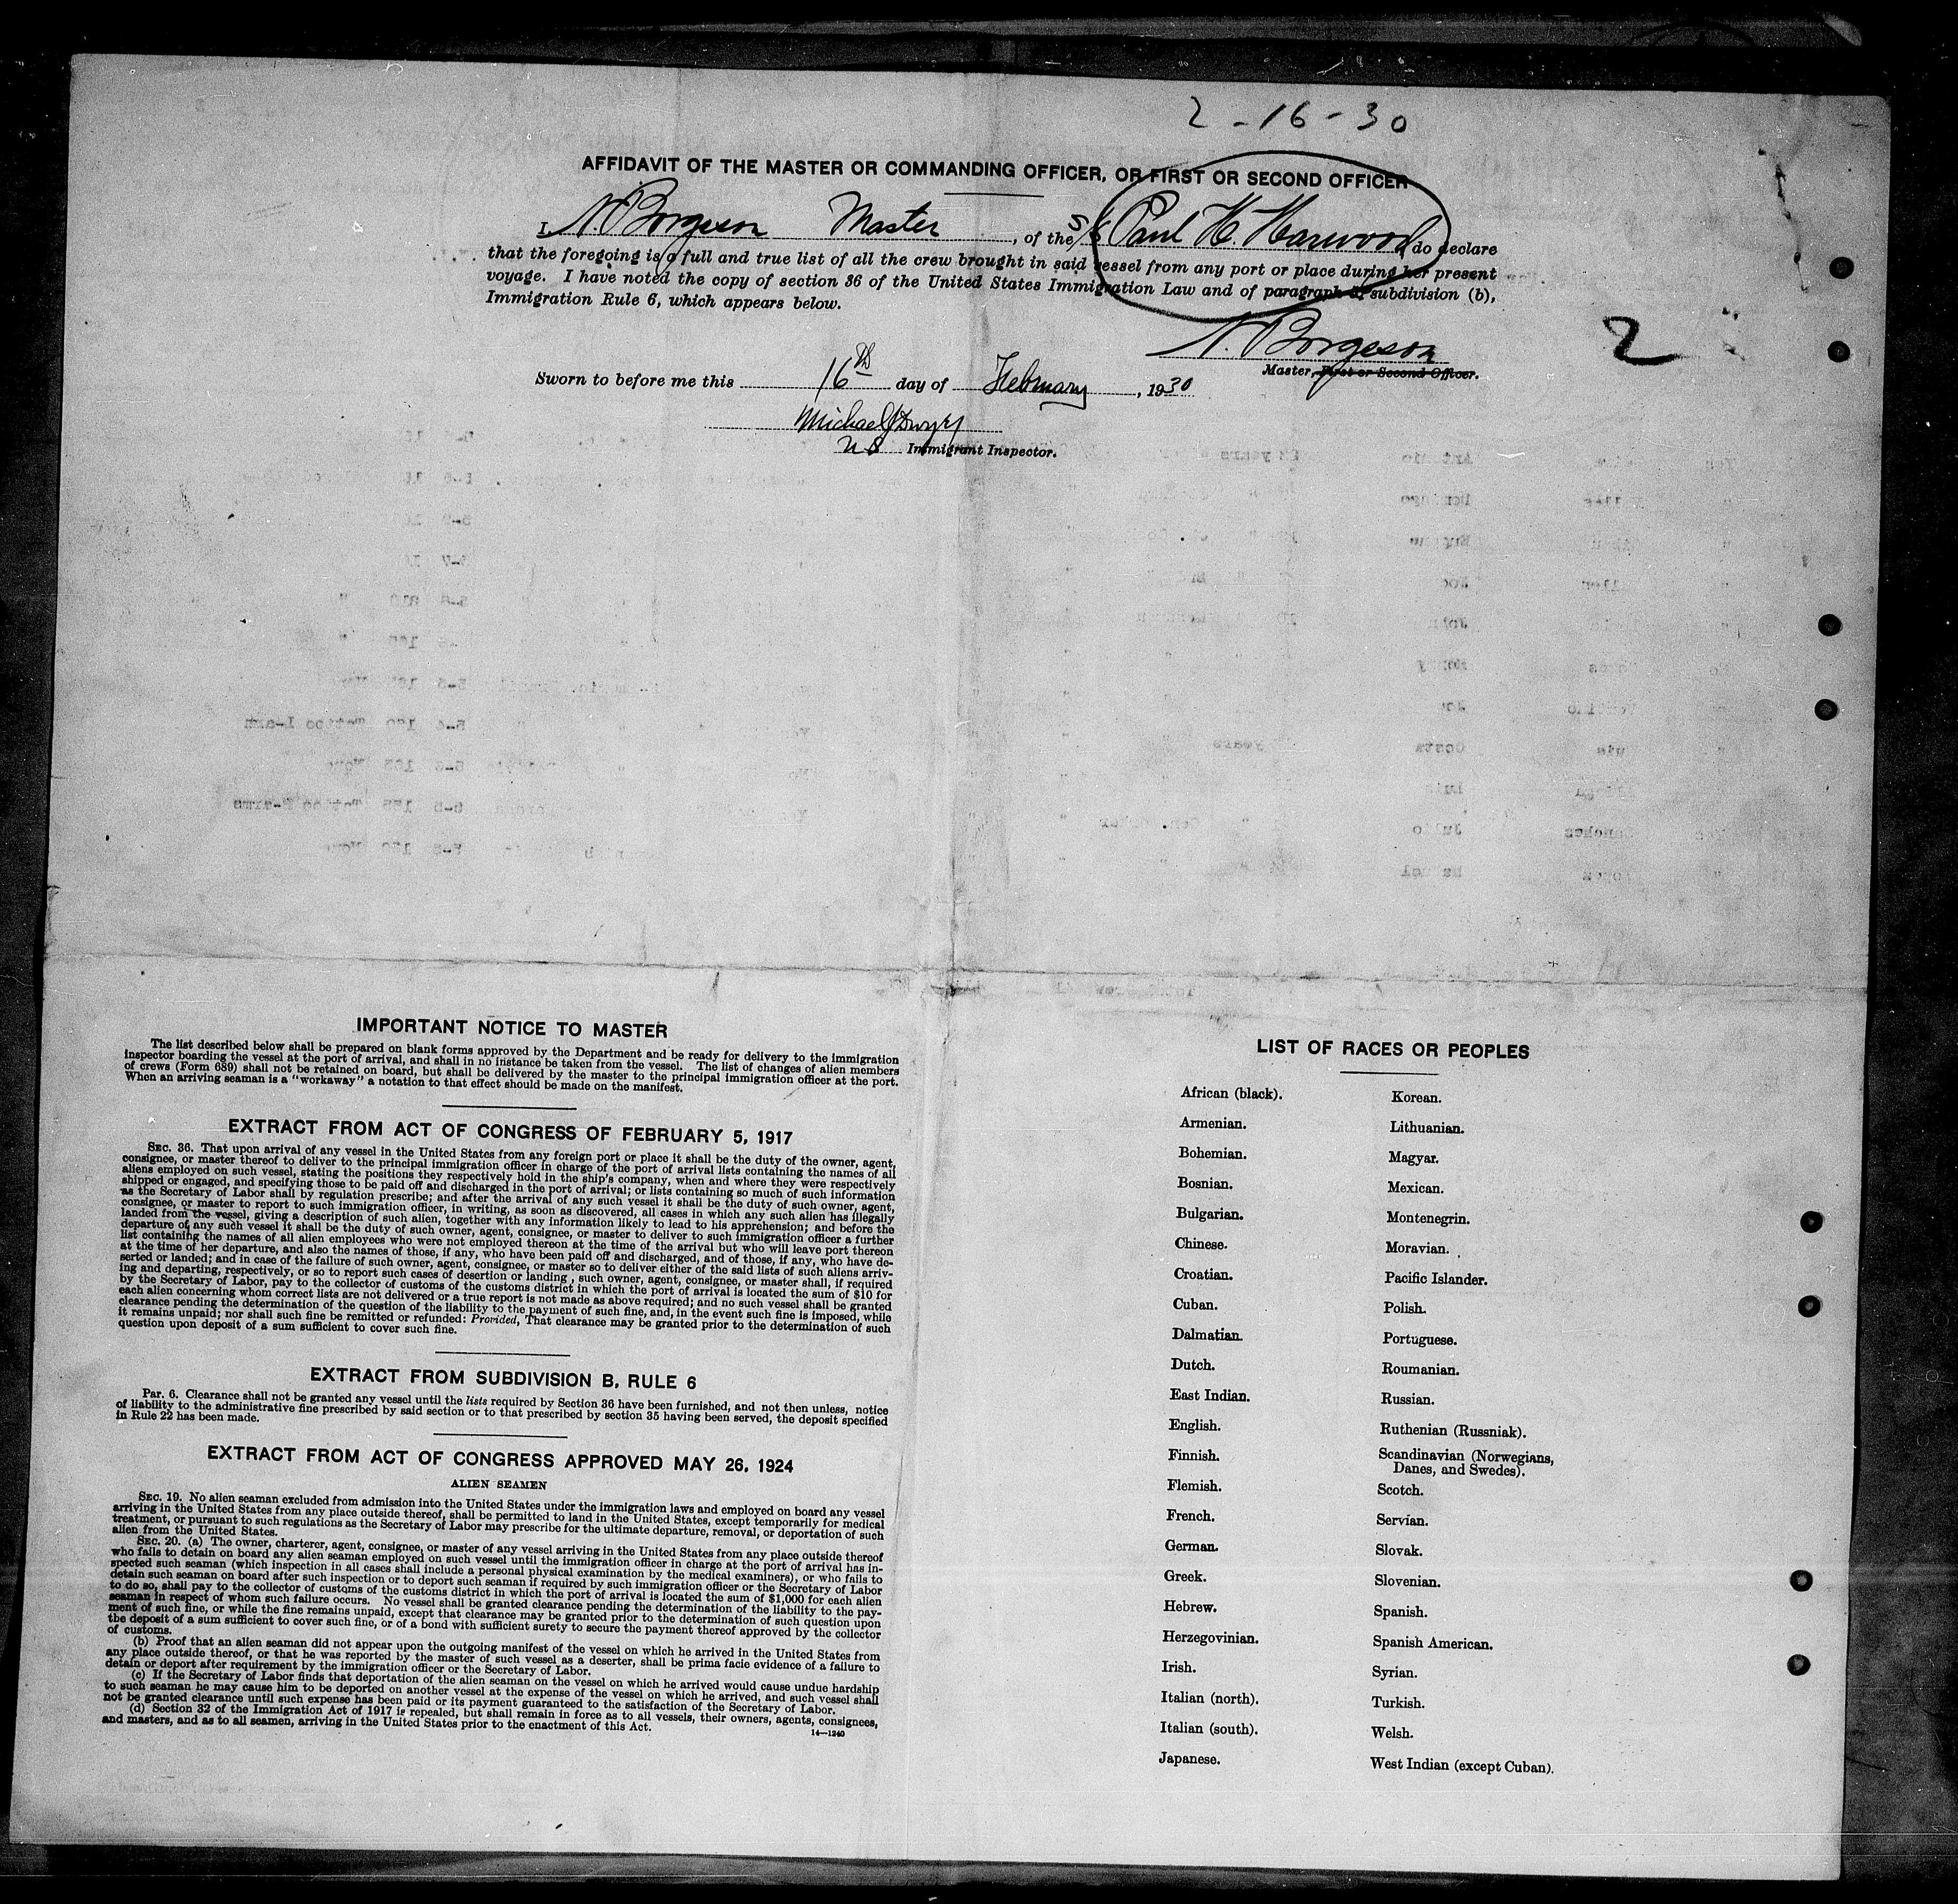 2-16-30
AFFIDAVIT OF THE MASTER OR COMMANDING OFFICER, OR FIRST OR SECOND OFFICER
I, N. Borgeson Master, of the S/S Paul H. Harwood, do declare
that the foregoing is a full and true list of all the crew brought in said vessel from any port or place during her present
voyage. I have noted the copy of section 36 of the United States Immigration Law and of paragraph 6, subdivision (b),
Immigration Rule 6, which appears below.
N. Borgeson
2
Master, First or Second Officer.
Sworn to before me this 16th day of February, 1930
Michael J Dwyer
US Immigrant Inspector.
IMPORTANT NOTICE TO MASTER
The list described below shall be prepared on blank forms approved by the Department and be ready for delivery to the immigration
inspector boarding the vessel at the port of arrival, and shall in no instance be taken from the vessel. The list of changes of alien members
of crews (Form 689) shall not be retained on board, but shall be delivered by the master to the principal immigration officer at the port.
When an arriving seaman is a "workaway" a notation to that effect should be made on the manifest.
EXTRACT FROM ACT OF CONGRESS OF FEBRUARY 5, 1917
SEC. 36. That upon arrival of any vessel in the United States from any foreign port or place it shall be the duty of the owner, agent,
consignee, or master thereof to deliver to the principal immigration officer in charge of the port of arrival lists containing the names of all
aliens employed on such vessel, stating the positions they respectively hold in the ship's company, when and where they were respectively
shipped or engaged, and specifying those to be paid off and discharged in the port of arrival; or lists containing so much of such information
as the Secretary of Labor shall by regulation prescribe; and after the arrival of any such vessel it shall be the duty of such owner, agent,
consignee, or master to report to such immigration officer, in writing, as soon as discovered, all cases in which any such alien has illegally
landed from the vessel, giving a description of such alien, together with any information likely to lead to his apprehension; and before the
departure of any such vessel it shall be the duty of such owner, agent, consignee, or master to deliver to such immigration officer a further
list containing the names of all alien employees who were not employed thereon at the time of the arrival but who will leave port thereon
at the time of her departure, and also the names of those, if any, who have been paid off and discharged, and of those, if any, who have de-
serted or landed; and in case of the failure of such owner, agent, consignee, or master so to deliver either of the said lists of such aliens arriv-
ing and departing, respectively, or so to report such cases of desertion or landing, such owner, agent, consignee, or master shall, if required
by the Secretary of Labor, pay to the collector of customs of the customs district in which the port of arrival is located the sum of $10 for
each alien concerning whom correct lists are not delivered or a true report is not made as above required; and no such vessel shall be granted
clearance pending the determination of the question of the liability to the payment of such fine, and, in the event such fine is imposed, while
it remains unpaid; nor shall such fine be remitted or refunded: Provided, That clearance may be granted prior to the determination of such
question upon deposit of a sum sufficient to cover such fine.
EXTRACT FROM SUBDIVISION B, RULE 6
Par. 6. Clearance shall not be granted any vessel until the lists required by Section 36 have been furnished, and not then unless, notice
of liability to the administrative fine prescribed by said section or to that prescribed by section 35 having been served, the deposit specified
in Rule 22 has been made.
EXTRACT FROM ACT OF CONGRESS APPROVED MAY 26, 1924
ALIEN SEAMEN
SEC. 19. No alien seaman excluded from admission into the United States under the immigration laws and employed on board any vessel
arriving in the United States from any place outside thereof, shall be permitted to land in the United States, except temporarily for medical
treatment, or pursuant to such regulations as the Secretary of Labor may prescribe for the ultimate departure, removal, or deportation of such
alien from the United States.
SEC. 20. (a) The owner, charterer, agent, consignee, or master of any vessel arriving in the United States from any place outside thereof
who fails to detain on board any alien seaman employed on such vessel until the immigration officer in charge at the port of arrival has in-
spected such seaman (which inspection in all cases shall include a personal physical examination by the medical examiners), or who fails to
detain such seaman on board after such inspection or to deport such seaman if required by such immigration officer or the Secretary of Labor
to do so, shall pay to the collector of customs of the customs district in which the port of arrival is located the sum of $1,000 for each alien
seaman in respect of whom such failure occurs. No vessel shall be granted clearance pending the determination of the liability to the pay-
ment of such fine, or while the fine remains unpaid, except that clearance may be granted prior to the determination of such question upon
the deposit of a sum sufficient to cover such fine, or of a bond with sufficient surety to secure the payment thereof approved by the collector
of customs.
(b) Proof that an alien seaman did not appear upon the outgoing manifest of the vessel on which he arrived in the United States from
any place outside thereof, or that he was reported by the master of such vessel as a deserter, shall be prima facie evidence of a failure to
detain or deport after requirement by the immigration officer or the Secretary of Labor.
(c) If the Secretary of Labor finds that deportation of the alien seaman on the vessel on which he arrived would cause undue hardship
to such seaman he may cause him to be deported on another vessel at the expense of the vessel on which he arrived, and such vessel shall
not be granted clearance until such expense has been paid or its payment guaranteed to the satisfaction of the Secretary of Labor.
(d) Section 32 of the Immigration Act of 1917 is repealed, but shall remain in force as to all vessels, their owners, agents, consignees,
and masters, and as to all seamen, arriving in the United States prior to the enactment of this Act.
14—1240
LIST OF RACES OR PEOPLES
African (black).
Armenian.
Bohemian.
Bosnian.
Bulgarian.
Chinese.
Croatian.
Cuban.
Dalmatian.
Dutch.
East Indian.
English.
Finnish.
Flemish.
French.
German.
Greek.
Hebrew.
Herzegovinian.
Irish.
Italian (north).
Italian (south).
Japanese.
Korean.
Lithuanian.
Magyar.
Mexican.
Montenegrin.
Moravian.
Pacific Islander.
Polish.
Portuguese.
Roumanian.
Russian.
Ruthenian (Russniak).
Scandinavian (Norwegians,
Danes, and Swedes).
Scotch.
Servian.
Slovak.
Slovenian.
Spanish.
Spanish American.
Syrian.
Turkish.
Welsh.
West Indian (except Cuban).